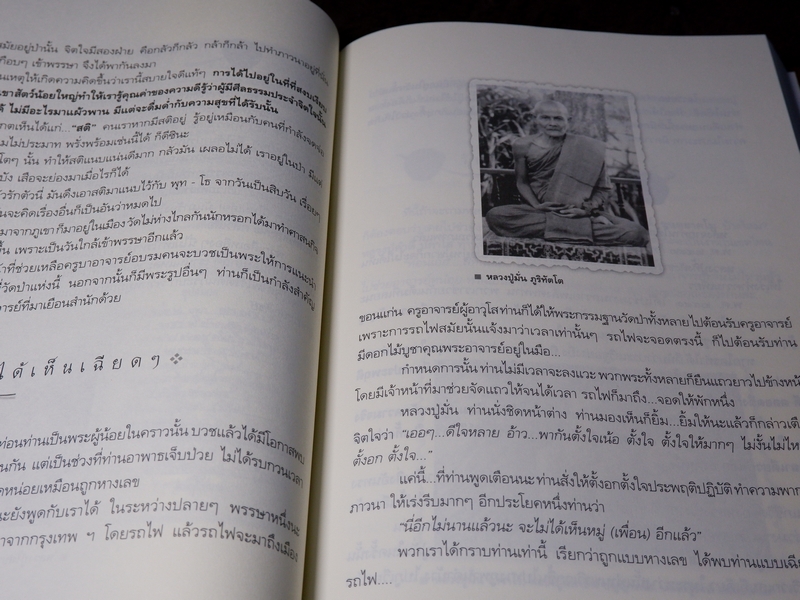 สมัยอยู่ป่านั้น จิตใจมีสองฝ่าย คือกลัวก็กลัว กล้าก็กล้า ไปทำภาวนาอยู่
เกือบๆ เข้าพรรษา จึงได้พากันลงมา
นเหตุให้เกิดความคิดขึ้นว่าเรานี้สบายใจดีแท้ๆ การได้ไปอยู่ในที่
เขาสัตว์น้อยใหญ่ทำให้เรารู้คุณค่าของความดีรู้ว่าผู้มีศีลธรรมประจำจิตใจนั้น
ดี ไม่มีอะไรมาแผ้วพาน มีแต่จะดื่มด่ำกับความสุขที่ได้รับนั้น
กตเห็นได้แก่..."สติ" คนเราหากมีสติอยู่ รู้อยู่เหมือนกับคนที่กำลัง
มไม่ประมาท พรั่งพร้อมเช่นนี้ได้ ก็ดีซินะ
โตๆ นั้น ทำให้สติแนบแน่นดีมาก กลัวมัน เผลอไม่ได้ เราอยู่ในป่า
บัง เสือจะย่องมาเมื่อไรก็ได้
ัวรักตัวนี่ มันดึงเอาสติมาแนบไว้กับ พุท - โธ จากวันเป็นสิบวัน เรื่อยๆ
นจะคิดเรื่องอื่นก็เป็นอันว่าหมดไป
มาจากภูเขา ก็มาอยู่ในเมือง วัดไม่ห่างไกลกันนักหรอกได้มาทำศาสนกิจ
ั้น เพราะเป็นวันใกล้เข้าพรรษาอีกแล้ว
้าที่ช่วยเหลือครูบาอาจารย์อบรมคนจะบวชเป็นพระให้การแนะนำ
ที่วัดป่าแห่งนี้ นอกจากนั้นก็มีพระรูปอื่นๆ ท่านก็เป็นกำลังสำคัญ
จารย์ที่มาเยือนสำนักด้วย
ได้เห็นเฉียดๆ
ท่อนท่านเป็นพระผู้น้อยในคราวนั้น บวชแล้วได้มีโอกาสพบ
นกัน แต่เป็นช่วงที่ท่านอาพาธเจ็บป่วย ไม่ได้รบกวนเวลา
ดหน่อยเหมือนถูกหางเลข
นะยังพูดกับเราได้ ในระหว่างปลายๆ พรรษาหนึ่งนะ
าจากกรุงเทพ ฯ โดยรถไฟ แล้วรถไฟจะมาถึงเมือง
■ หลวงปู่มั่น ภูริทัตโต
ขอนแก่น ครูอาจารย์ผู้อาวุโสท่านก็ได้ให้พระกรรมฐานวัดป่าทั้งหลายไปต้อนรับครูอาจารย์
เพราะการรถไฟสมัยนั้นแจ้งมาว่าเวลาเท่านั้นๆ รถไฟจะจอดตรงนี้ ก็ไปต้อนรับท่าน
มีดอกไม้บูชาคุณพระอาจารย์อยู่ในมือ...
กำหนดการนั้น ท่านไม่มีเวลาจะลงแวะ พวกพระทั้งหลายก็ยืนแถวยาวไปข้างหน้
โดยมีเจ้าหน้าที่มาช่วยจัดแถวให้จนได้เวลา รถไฟก็มาถึง...จอดให้พักหนึ่ง
หลวงปู่มั่น ท่านนั่งชิดหน้าต่าง ท่านมองเห็นก็ยิ้ม...ยิ้มให้นะแล้วก็กล่าวเตื
จิตใจว่า "เออๆ...ดีใจหลาย อ้าว...พากันตั้งใจเน้อ ตั้งใจ ตั้งใจให้มากๆ ไม่งั้นไม่ไห
ตั้งอก ตั้งใจ..."
แค่นี้...ที่ท่านพูดเตือนนะท่านสั่งให้ตั้งอกตั้งใจประพฤติปฏิบัติ ทำความพา
ภาวนา ให้เร่งรีบมากๆ อีกประโยคหนึ่งท่านว่า
"นี่อีกไม่นานแล้วนะ จะไม่ได้เห็นหมู่ (เพื่อน) อีกแล้ว"
พวกเราได้กราบท่านเท่านี้ เรียกว่าถูกแบบหางเลข ได้พบท่านแบบเฉีย
รถไฟ....